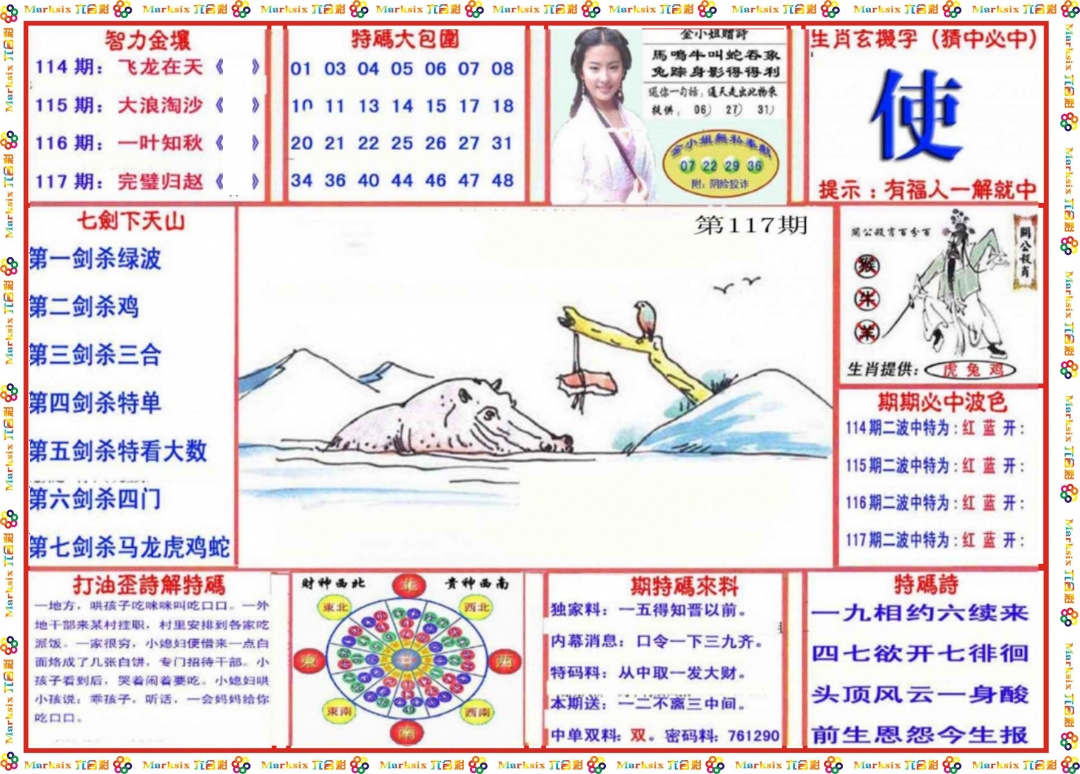 Marksix 六合彩
智力金壤
114期：飞龙在天《 》
115期：大浪淘沙《 》
116期：一叶知秋《 》
117期：完璧归赵《 》
特碼大包圍
01 03 04 05 06 07 08
10 11 13 14 15 17 18
20 21 22 25 26 27 31
34 36 40 44 46 47 48
金小姐赠詩
馬鳴牛叫蛇吞象
兔踪身影得得利
送你一句话：通天走出此物来
提供：06） 27） 31）
金小姐無私奉獻
07 22 29 36
附：阴险狡诈
生肖玄摋字（猜中必中）
使
提示：有福人一解就中
七劍下天山
第一剑杀绿波
第二剑杀鸡
第三剑杀三合
第四剑杀特单
第五剑杀特看大数
第六剑杀四门
第七剑杀马龙虎鸡蛇
第117期
關公殺肖百分百
關公殺肖
猴
牛
羊
生肖提供：虎 兔 鸡
期期必中波色
114期二波中特为：红 蓝 开：
115期二波中特为：红 蓝 开：
116期二波中特为：红 蓝 开：
117期二波中特为：红 蓝 开：
打油歪詩解特碼
一地方，哄孩子吃咪咪叫吃口口。一外
地干部来某村挂职，村里安排到各家吃
派饭。一家很穷，小媳妇便借来一点白
面烙成了几张白饼，专门招待干部。小
孩子看到后，哭着闹着要吃。小媳妇哄
小孩说：乖孩子，听话，一会妈妈给你
吃口口。
财神西北
贵神西南
北
東北
西北
東
西
東南
西南
南
期特碼來料
独家料：一五得知晋以前。
内幕消息：口令一下三九齐。
特码料：从中取一发大财。
本期送：一二不离三中间。
中单双料：双。密码料：761290
特碼詩
一九相约六续来
四七欲开七徘徊
头顶风云一身酸
前生恩怨今生报